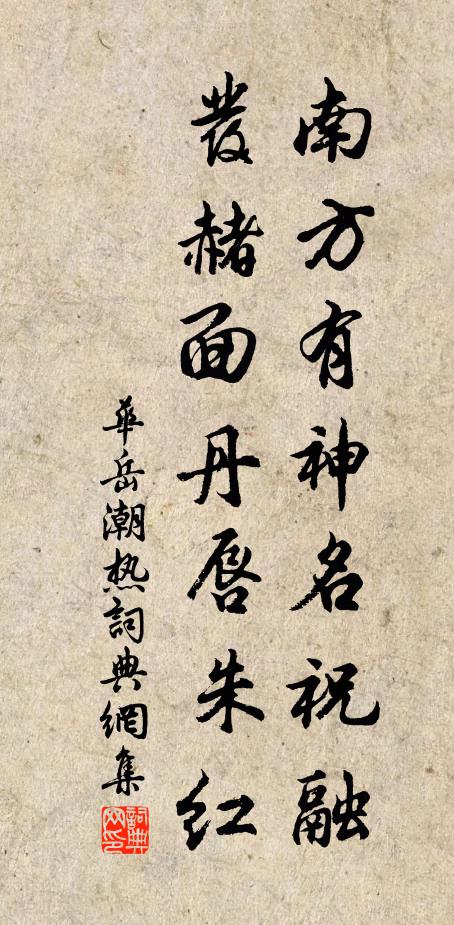 南方有神名祝融
發赭面丹唇朱红
華岳潮热詞典網集
詞典網印